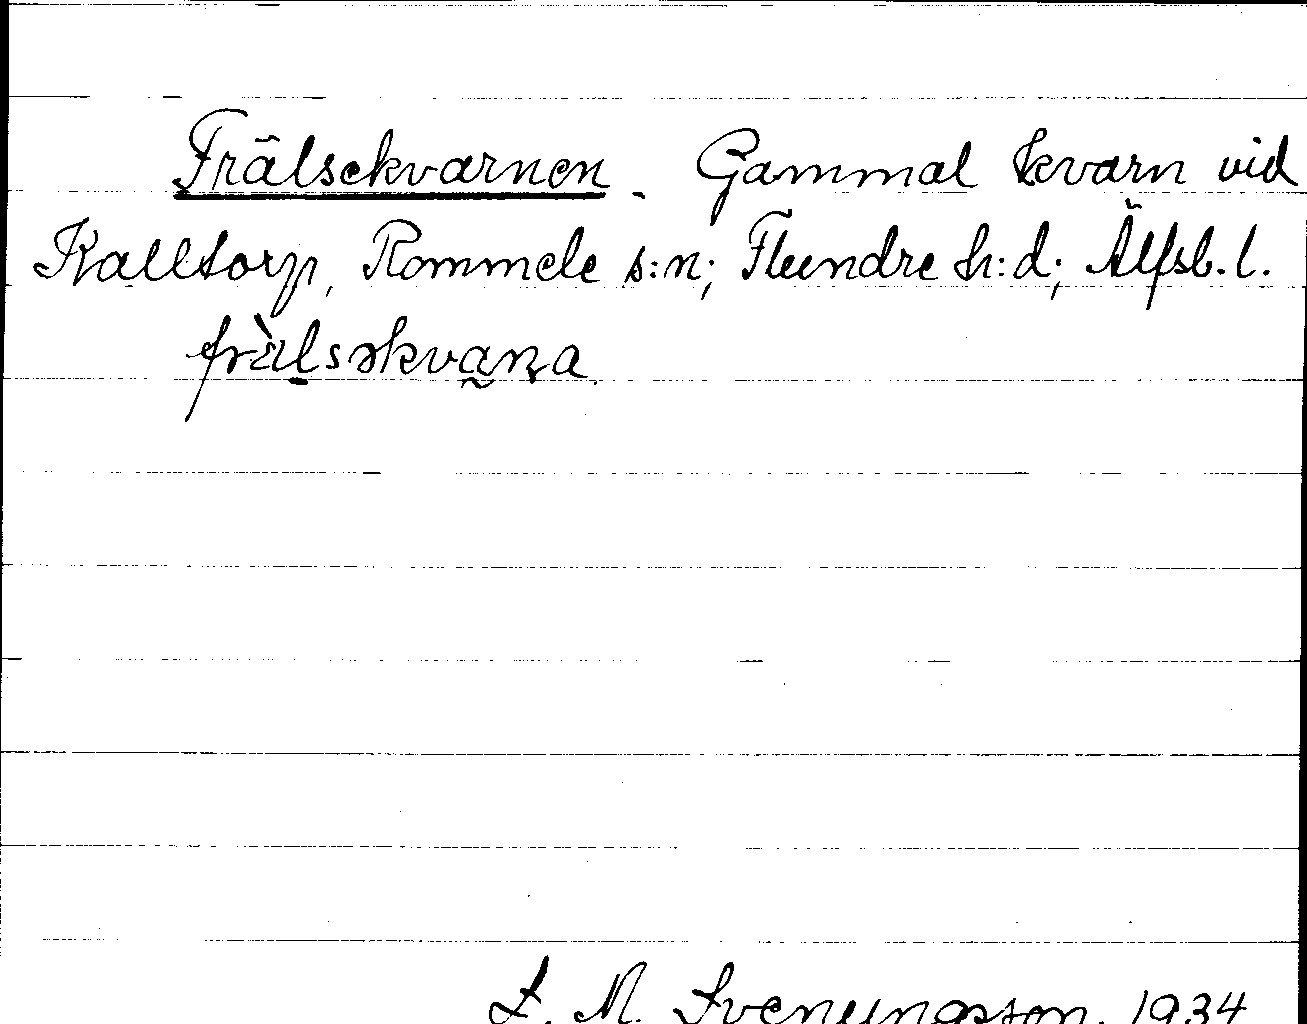 Frälsekvarnen. Gammal kvarn vid
Kalltorp, Rommele s:n; Flundre h:d; Älfsb. l.
fràlsəkvaɳa
M. Svenungsson. 1934